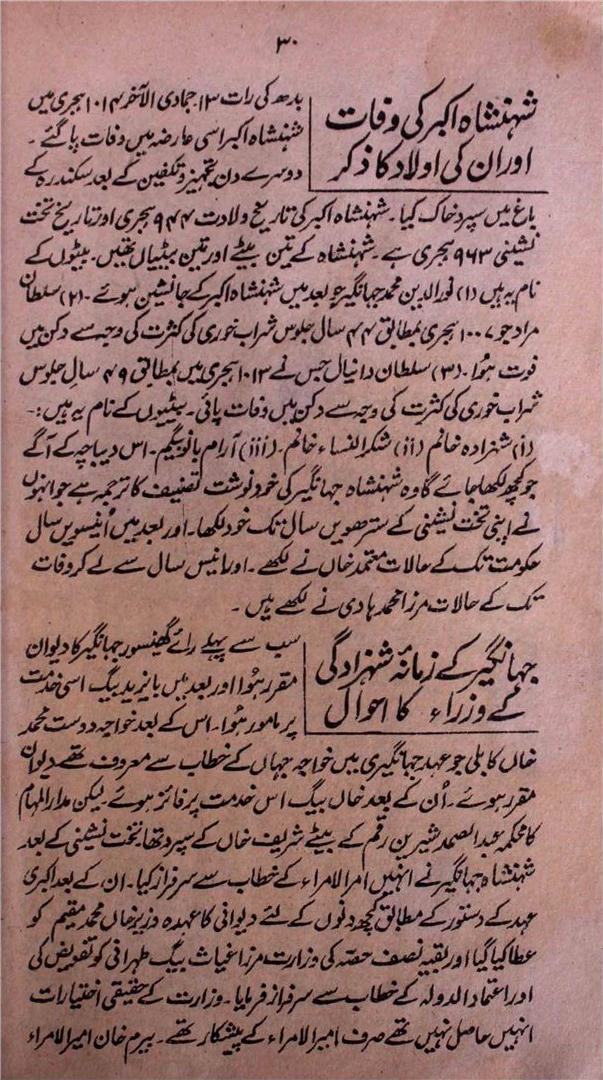 ۳۰
شہنشاہ اکبر کی وفات
اور ان کی اولاد کا ذکر
بدھ کی رات ۱۳ جمادی الآخر ۱۰۱۴ ہجری میں
شہنشاہ اکبر اسی عارضہ میں وفات پا گئے ۔
دوسرے دن تجہیز و تکفین کے بعد سکندرہ کے
باغ میں سپردِ خاک کیا ۔ شہنشاہ اکبر کی تاریخ ولادت ۹۴۴ ہجری اور تاریخ تخت
نشینی ۹۶۳ ہجری ہے ۔ شہنشاہ کے تین بیٹے اور تین بیٹیاں تھیں ۔ بیٹوں کے
نام یہ ہیں (۱) نور الدین محمد جہانگیر جو بعد میں شہنشاہ اکبر کے جانشین ہوئے ۔ (۲) سلطان
مراد جو ۱۰۰۷ ہجری بمطابق ۴۴ سال جلوس شراب خوری کی کثرت کی وجہ سے دکن میں
فوت ہؤا ۔ (۳) سلطان دانیال جس نے ۱۰۱۳ ہجری میں بمطابق ۴۹ سالِ جلوس
شراب خوری کی کثرت کی وجہ سے دکن میں وفات پائی ۔ بیٹیوں کے نام یہ ہیں :-
(i) شہزادہ خانم (ii) شکر النساء خانم ۔ (iii) آرام بانو بیگم ۔ اس دیباچہ کے آگے
جو کچھ لکھا جائے گا وہ شہنشاہ جہانگیر کی خود نوشت تصنیف کا ترجمہ ہے جو انہوں
نے اپنی تخت نشینی کے سترھویں سال تک خود لکھا ۔ اور بعد میں اُنیسویں سال
حکومت تک کے حالات معتمد خاں نے لکھے ۔ اور انیس سال سے لے کر وفات
تک کے حالات مرزا محمد ہادی نے لکھے ہیں ۔
جہانگیر کے زمانۂ شہزادگی
کے وزراء کا احوال
سب سے پہلے رائے گھنسور جہانگیر کا دیوان
مقرر ہؤا اور بعد میں بایزید بیگ اسی خدمت
پر مامور ہؤا ۔ اس کے بعد خواجہ دوست محمد
خاں کابلی جو عہدِ جہانگیری میں خواجہ جہاں کے خطاب سے معروف تھے دیوان
مقرر ہوئے ۔ اُن کے بعد خاں بیگ اس خدمت پر فائز ہوئے لیکن مدار المہام
کا محکمہ عبد الصمد شیریں رقم کے بیٹے شریف خاں کے سپرد تھا ۔ تخت نشینی کے بعد
شہنشاہ جہانگیر نے انہیں امر الامراء کے خطاب سے سرفراز کیا ۔ ان کے بعد اکبری
عہد کے دستور کے مطابق کچھ دنوں کے لئے دیوانی کا عہدہ وزیر خاں محمد مقیم کو
عطا کیا گیا اور بقیہ نصف حصّہ کی وزارت مرزا غیاث بیگ طہرانی کو تفویض کی
اور اعتماد الدولہ کے خطاب سے سرفراز فرمایا ۔ وزارت کے حقیقی اختیارات
انہیں حاصل نہیں تھے صرف امیر الامراء کے پیشکار تھے ۔ بیرم خان امیر الامراء